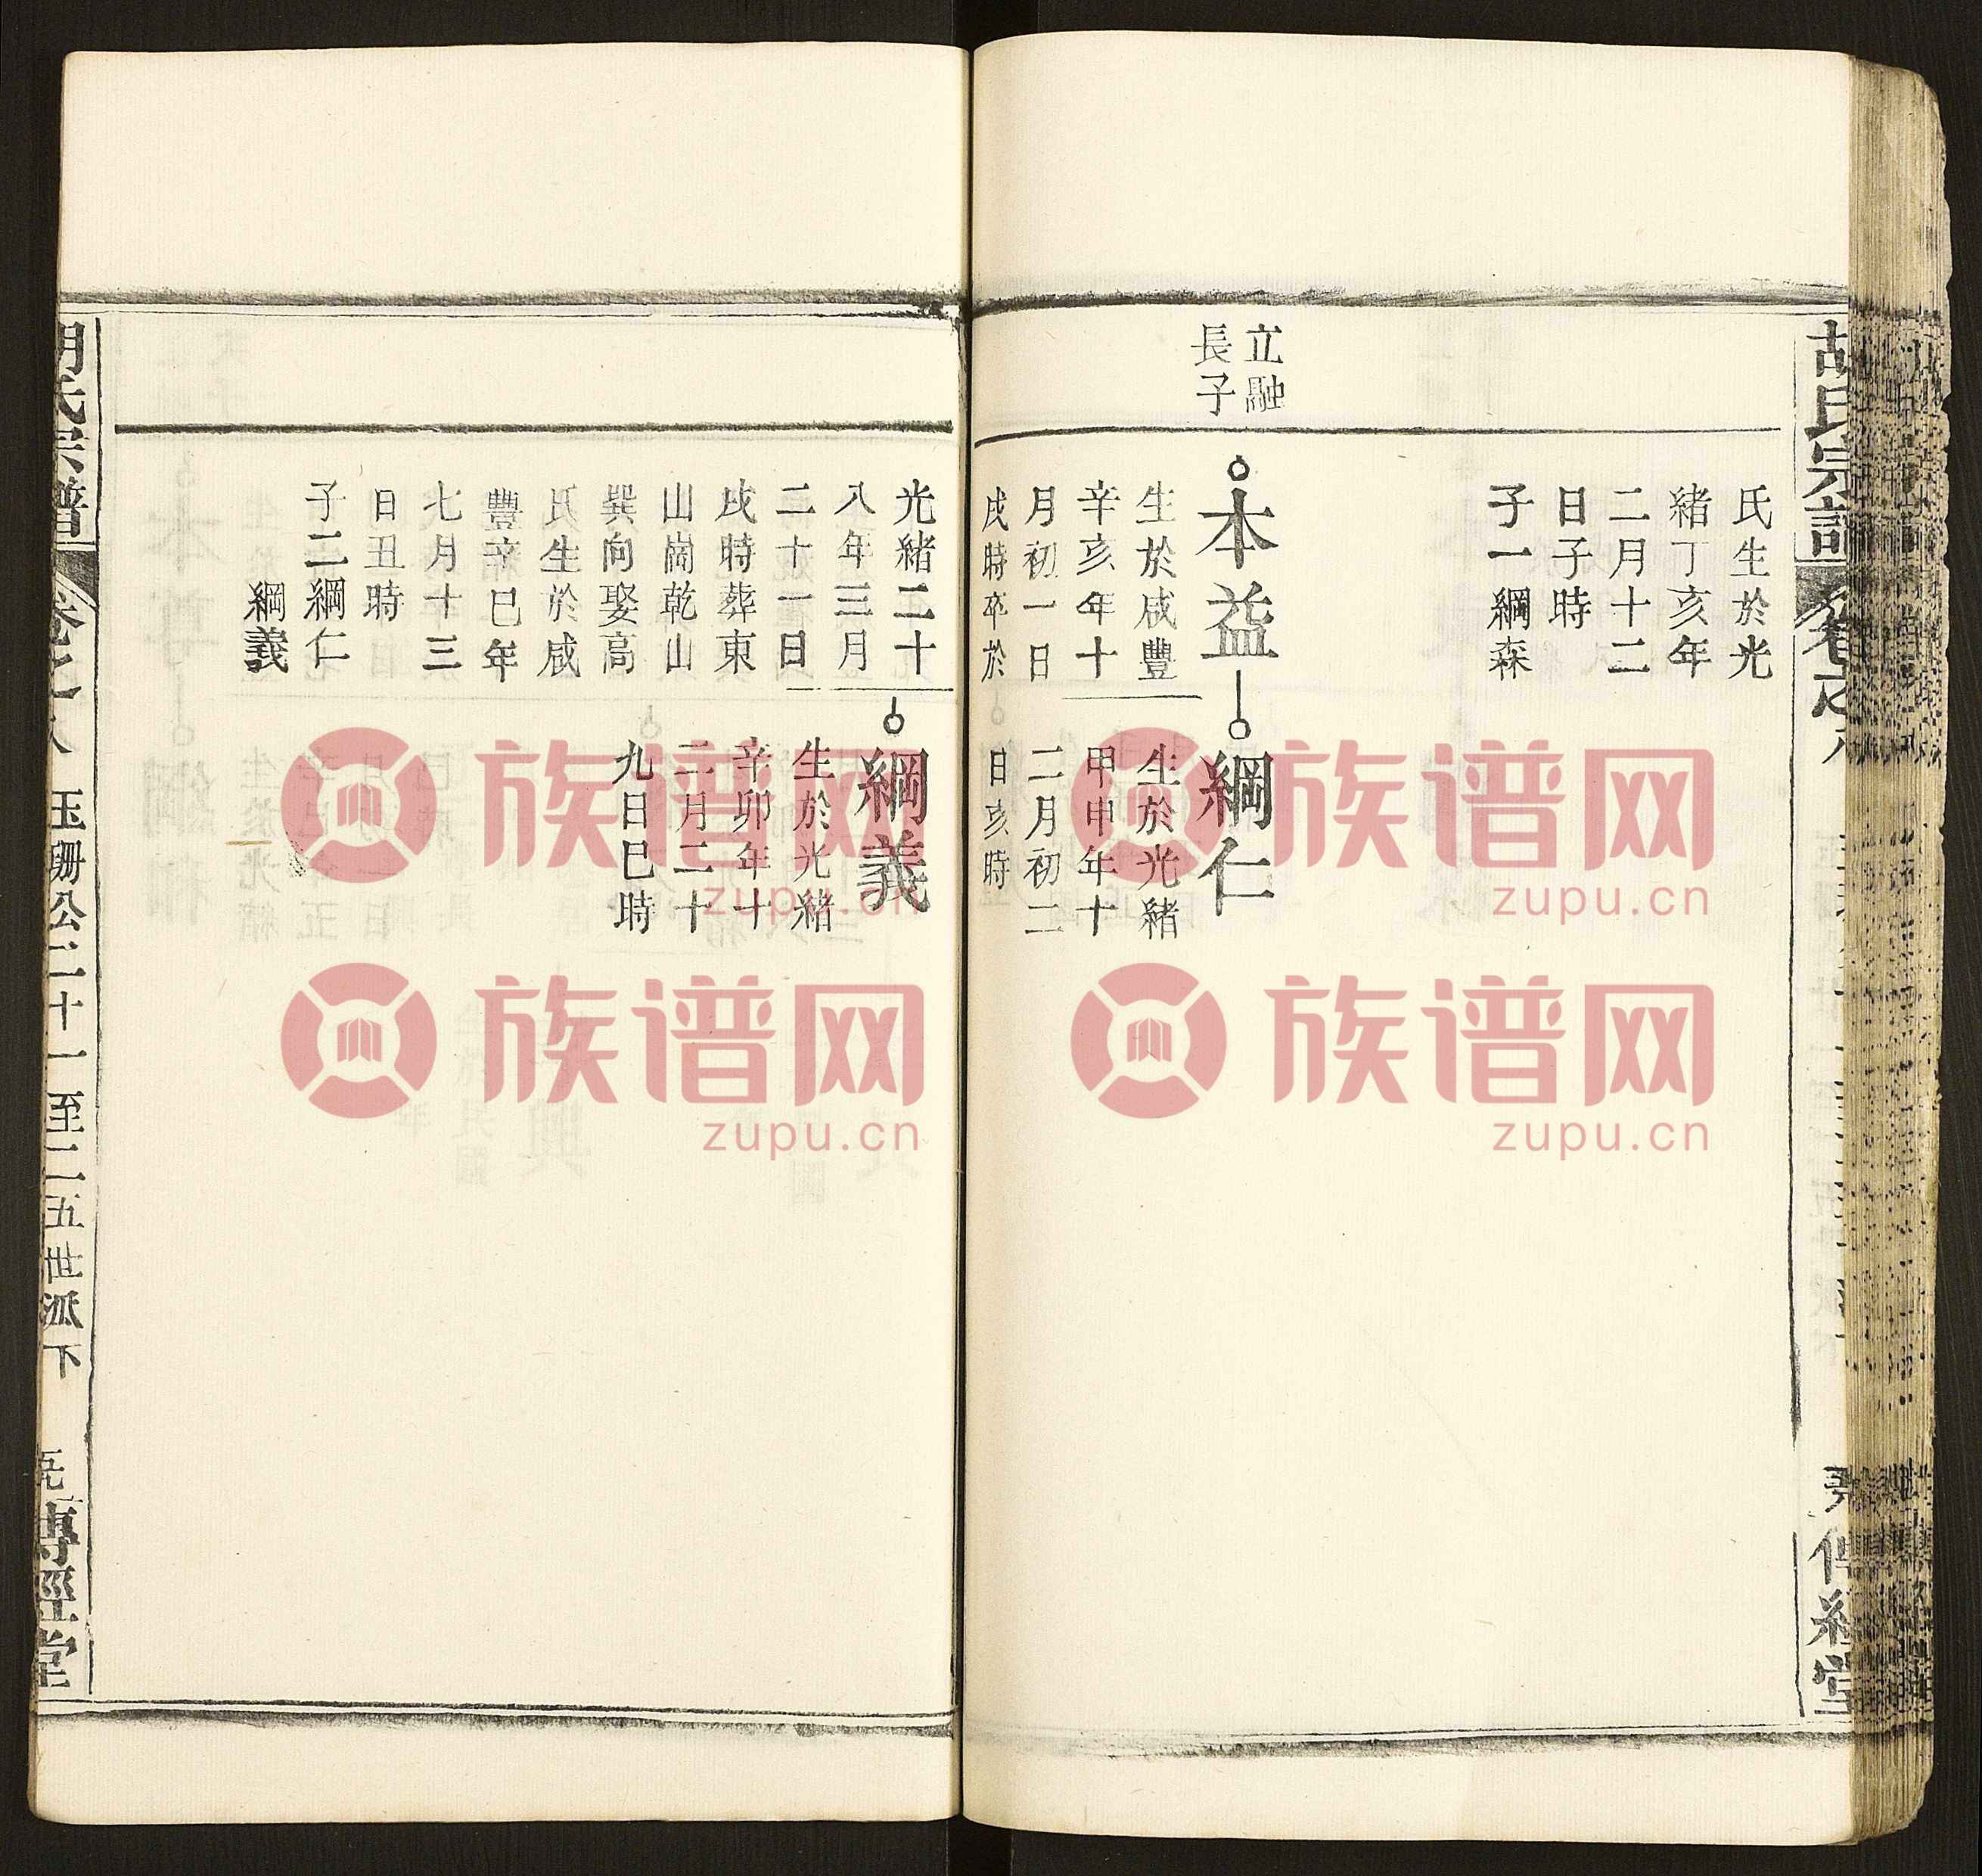 胡氏宗譜
卷之八
傳經堂
氏生於光
緒丁亥年
二月十二
日子時
子一綱森
立融
長子
本益
生於咸豐
辛亥年十
月初一日
戌時卒於
綱仁
生於光緒
甲申年十
二月初二
日亥時
光緒二十
八年三月
二十一日
戌時葬東
山崗乾山
巽向娶高
氏生於咸
豐辛巳年
七月十三
日丑時
子二綱仁
綱義
綱義
生於光緒
辛卯年十
二月二十
九日巳時
胡氏宗譜
卷之八
玉珊公二十一至二五世派下
傳經堂
族谱网
zupu.cn
族谱网
zupu.cn
族谱网
zupu.cn
族谱网
zupu.cn